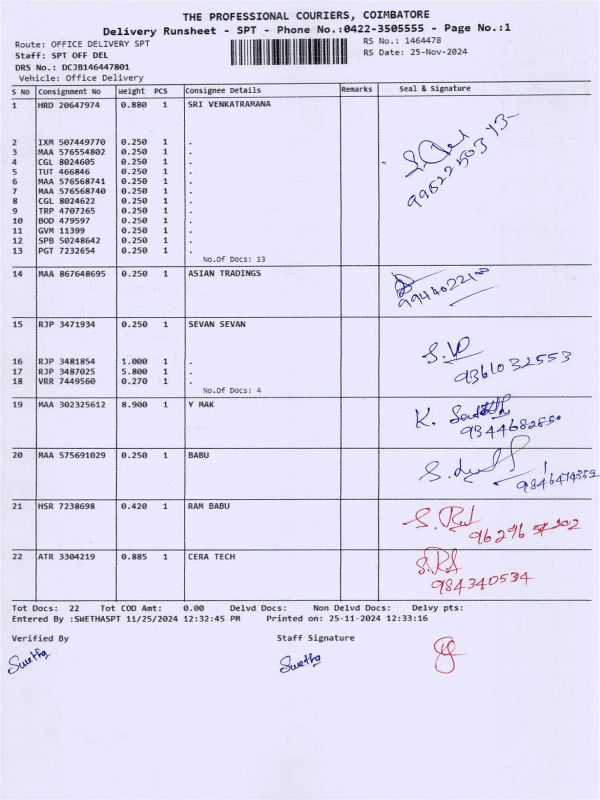 THE PROFESSIONAL COURIERS, COIMBATORE
Delivery Runsheet - SPT - Phone No.:0422-3505555 - Page No.:1
Route: OFFICE DELIVERY SPT
RS No.: 1464478
Staff: SPT OFF DEL
RS Date: 25-Nov-2024
DRS No.: DCJB146447801
Vehicle: Office Delivery
S No Consignment No Weight PCS Consignee Details Remarks Seal & Signature
1 HRD 20647974 0.880 1 SRI VENKATRAMANA
2 IXM 507449770 0.250 1 .
3 MAA 576554802 0.250 1 .
4 CGL 8024605 0.250 1 .
5 TUT 466846 0.250 1 .
6 MAA 576568741 0.250 1 .
7 MAA 576568740 0.250 1 .
8 CGL 8024622 0.250 1 .
9 TRP 4707265 0.250 1 .
10 BOD 479597 0.250 1 .
11 GVM 11399 0.250 1 .
12 SPB 50248642 0.250 1 .
13 PGT 7232654 0.250 1 .
No.Of Docs: 13
14 MAA 867648695 0.250 1 ASIAN TRADINGS
9944022100
15 RJP 3471934 0.250 1 SEVAN SEVAN
9361032553
16 RJP 3481854 1.000 1 .
17 RJP 3487025 5.800 1 .
18 VRR 7449560 0.270 1 .
No.Of Docs: 4
19 MAA 302325612 8.900 1 Y MAK
K.
9344682850
20 MAA 575691029 0.250 1 BABU
21 HSR 7238698 0.420 1 RAM BABU
22 ATR 3304219 0.885 1 CERA TECH
984340534
Tot Docs: 22 Tot COD Amt: 0.00 Delvd Docs: Non Delvd Docs: Delvy pts:
Entered By :SWETHASPT 11/25/2024 12:32:45 PM Printed on: 25-11-2024 12:33:16
Verified By Staff Signature
Swetha Swetha